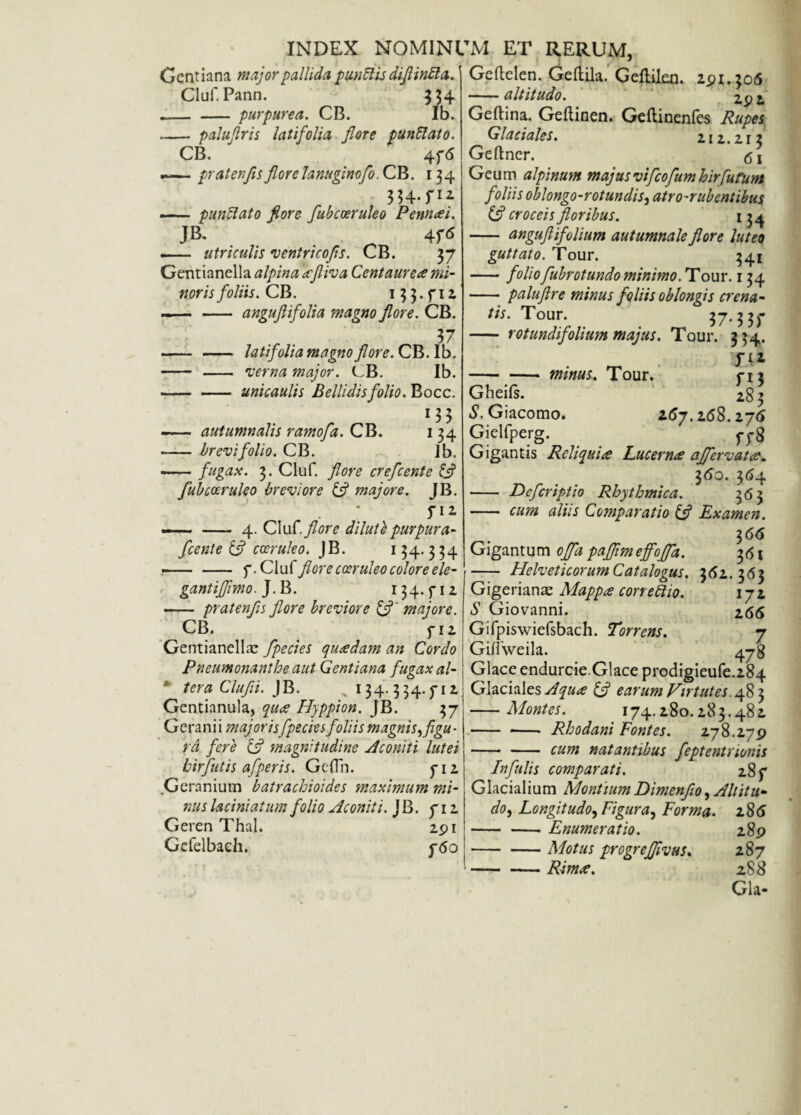 INDEX NOMINUM ET RERUM,
Gentiana major pallida punctis distincta.
Cluſ. Pann. 334
—— —— purpurea. CB. Ib.
—— paluſtris latifolia flore punctato.
CB. 456
—— pratenſis flore lanuginoſo. CB. 134
334. 512
—— punctato flore ſubcœruleo Pennæi.
JB. 456
—— utriculis ventricoſis. CB. 37
Gentianella alpina æſtiva Centaureæ mi-
noris foliis. CB. 133. 512
—— —— anguſtifolia magno flore. CB.
37
—— —— latifolia magno flore. CB. Ib.
—— —— verna major. CB. Ib.
—— —— unicaulis Bellidis folio. Bocc.
133
—— autumnalis ramoſa. CB. 134
—— brevifolio. CB. Ib.
—— fugax. 3. Cluſ. flore creſcente &
ſubcœruleo breviore & majore. JB.
512
—— —— 4. Cluſ. flore dilutè purpura-
ſcente & cœruleo. JB. 134. 334
—— —— 5. Cluſ flore cœruleo colore ele-
gantiſſimo. J. B. 134. 512
—— pratenſis flore breviore & majore.
CB. 512
Gentianellæ ſpecies quædam an Cordo
Pneumonanthe aut Gentiana fugax al-
tera Cluſii. JB. 134. 334. 512
Gentianula, quæ Hyppion. JB. 37
Geranii majoris ſpecies foliis magnis, figu-
rá ferè & magnitudine Aconiti lutei
hirſutis aſperis. Geſſn. 512
Geranium batrachioides maximum mi-
nus laciniatum folio Aconiti. JB. 512
Geren Thal. 291
Geſelbach. 560
Geſtelen. Geſtila. Geſtilen. 291. 306
—— altitudo. 292
Geſtina. Geſtinen. Geſtinenſes Rupes
Glaciales. 212. 213
Geſtner. 61
Geum alpinum majus viſcoſum hirſutum
foliis oblongo-rotundis, atro-rubentibus
& croceis floribus. 134
—— anguſtifolium autumnale flore luteo
guttato. Tour. 341
—— folio ſubrotundo minimo. Tour. 134
—— paluſtre minus foliis oblongis crena-
tis. Tour. 37. 335
—— rotundifolium majus. Tour. 334.
512
—— —— minus. Tour. 513
Gheiſs. 283
S. Giacomo. 267. 268. 276
Gielſperg. 558
Gigantis Reliquiæ Lucernæ aſſervatæ.
360. 364
—— Deſcriptio Rhythmica. 363
—— cum aliis Comparatio & Examen.
366
Gigantum oſſa paſſim effoſſa. 361
—— Helveticorum Catalogus. 362. 363
Gigerianæ Mappæ correctio. 172
S Giovanni. 266
Giſpiswieſsbach. Torrens. 7
Giſſweila. 478
Glace endurcie. Glace prodigieuſe. 284
Glaciales Aquæ & earum Virtutes. 483
—— Montes. 174. 280. 283. 482
—— —— Rhodani Fontes. 278. 279
—— —— cum natantibus ſeptentrionis
Inſulis comparati. 285
Glacialium Montium Dimenſio, Altitu-
do, Longitudo, Figura, Forma. 286
—— —— Enumeratio. 289
—— —— Motus progreſſivus. 287
—— —— Rimæ. 288
Gla-